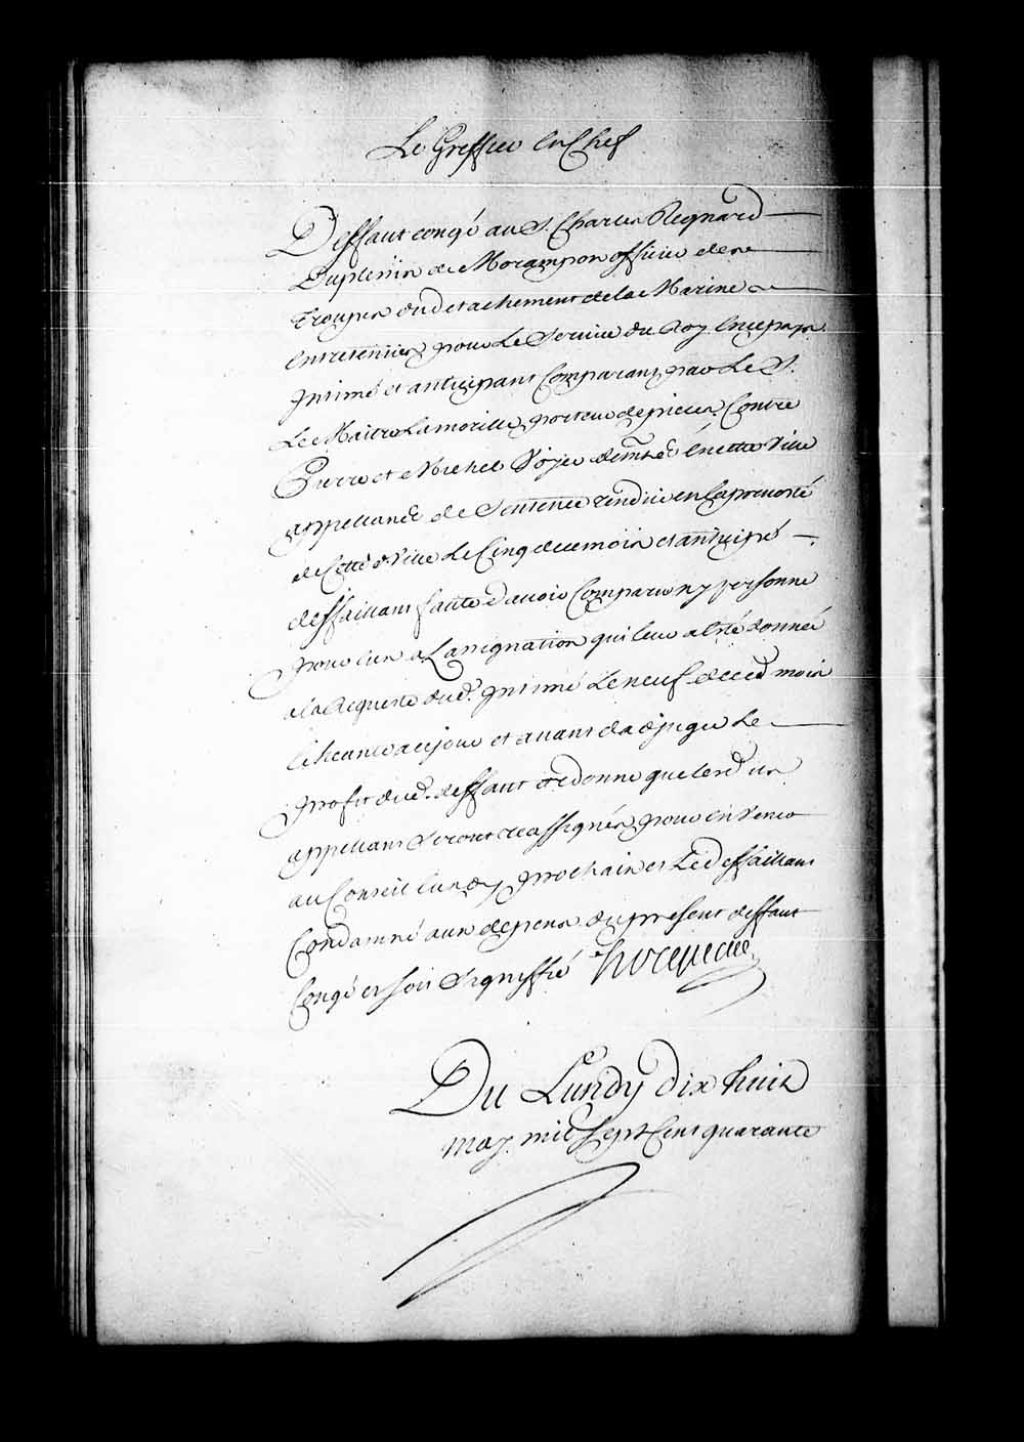 Le Greffier en Chef
Deffaut congé au S. Charles Regnard
Duplessis de Morampon officier dans les
Troupes du detachement de la Marine
Entretenües pour Le Service du Roy en ce pays
Intimé et anticipant Comparant par Le S.
Le Maitre Lamorille porteur de pieces Contre
Pierre et Michel Voyer demts en cette Ville
appellants de Sentence rendüe en la prevosté
de Cette Ville Le Cinq de ce mois et anticipé
deffaillant faute d'avoir Comparu ny personne
pour eux a L'assignation qui leur a esté donnée
a la Requeste dud. Intimé Le neuf de ced mois
Echeante a ce jour et avant d'adjuger Le
profit dud. deffaut ordonne que lesd
appellans Seront reassignés pour en Venir
au Conseil Lundy prochain et Led deffaillant
Condamné aux depens du present deffaut
Congé et soit Signiffié Hocquart
Du Lundy dix huit
may. mil Sept Cent quarante